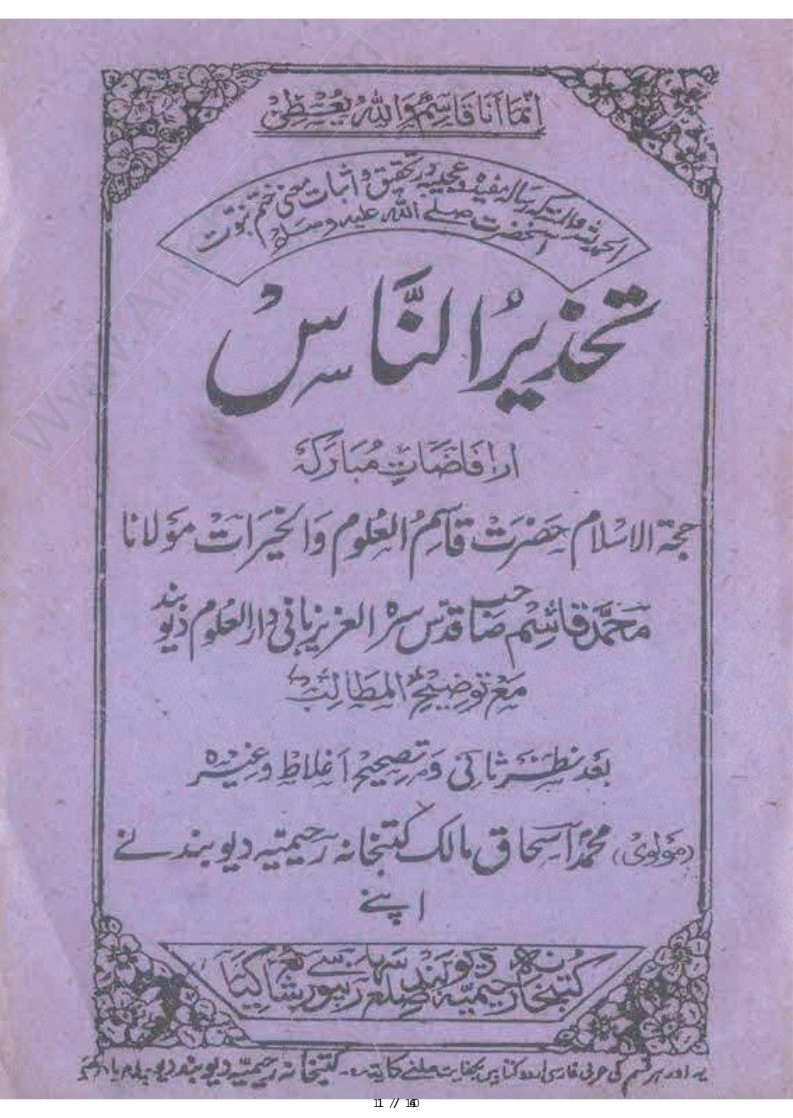 انما انا قاسم والله يعطى
الحمد لله والمنة کہ رسالہ مفیدہ وعجیبہ در تحقیق و اثبات معنی ختم نبوت
آنحضرت صلے اللہ علیہ وسلم
تحذیر الناس
از افاضات مبارکہ
حجۃ الاسلام حضرت قاسم العلوم والخیرات مولانا
محمد قاسم صاحب قدس سرہ العزیز بانی دارالعلوم دیوبند
مع توضیح المطالب
بعد نظر ثانی و تصحیح اغلاط وغیرہ
(مولوی) محمد اسحاق مالک کتبخانہ رحیمیہ دیوبند نے
اپنے
کتبخانہ رحیمیہ دیوبند ضلع سہارنپور سے شائع کیا
یہ اور ہر قسم کی عربی فارسی اردو کتابیں بکفایت ملنے کا پتہ:۔ کتبخانہ رحیمیہ دیوبند